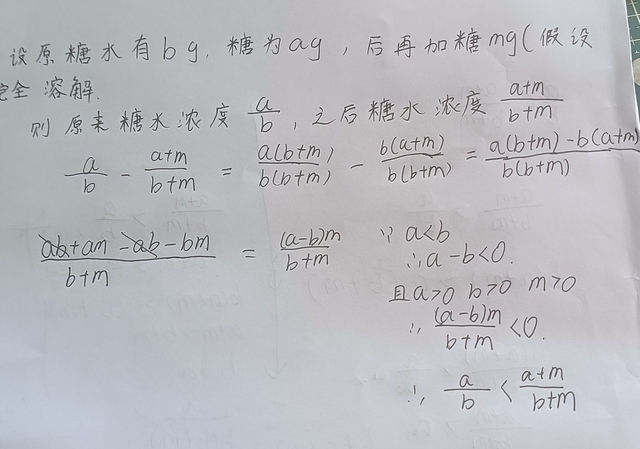 设原糖水有bg,糖为ag,后再加糖mg(假设
完全溶解.
则原来糖水浓度 a/b,之后糖水浓度 (a+m)/(b+m)
a/b - (a+m)/(b+m) = a(b+m)/b(b+m) - b(a+m)/b(b+m) = (a(b+m)-b(a+m))/b(b+m)
(ab+am-ab-bm)/(b+m) = (a-b)m/(b+m)
∵ a<b
∴ a-b<0.
且a>0 b>0 m>0
∴ (a-b)m/(b+m) <0.
∴ a/b < (a+m)/(b+m)